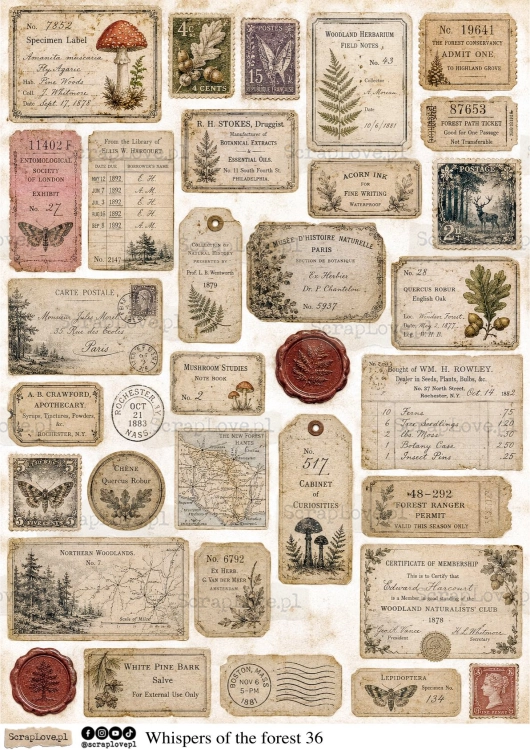 No. 7852
Specimen Label
Amanita muscaria
Fly Agaric
Hab. Pine Woods
Coll. J. Whitmore
Date Sept. 17, 1878
4c
4 CENTS
POSTES
15
WOODLAND HERBARIUM
FIELD NOTES
No. 43
Collector
A. Moreau
Date
10/6/1881
No. 19641
THE FOREST CONSERVANCY
ADMIT ONE
TO HIGHLAND GROVE
87653
FOREST PATH TICKET
Good for One Passage
Not Transferable
11402 F
ENTOMOLOGICAL
SOCIETY
OF LONDON
EXHIBIT
No. 27
From the Library of
ELLIS W. HARCOURT
DATE DUE BORROWER'S NAME
MAY 12 1892 E. H.
JUN 7 1892 A. M.
JUL 3 1892 E. H.
AUG 16 1892 E. H.
SEP 8 1892 A. M.
No. 2147
R. H. STOKES, Druggist
Manufacturer of
BOTANICAL EXTRACTS
&
ESSENTIAL OILS.
No. 11 South Fourth St.
PHILADELPHIA.
ACORN INK
FOR
FINE WRITING
WATERPROOF
POSTAGE
2d
COLLECTION OF
NATURAL HISTORY
PRESENTED BY
Prof. L. R. Wentworth
1879
MUSÉE D'HISTOIRE NATURELLE
PARIS
SECTION DE BOTANIQUE
Ex Herbier
Dr. P. Chantelon
No. 5937
No. 28
QUERCUS ROBUR
English Oak
Loc. Windsor Forest.
Date, May 2, 1877.
Leg. W. H. B.
CARTE POSTALE
Monsieur Jules Morel
35 Rue des Ecoles
Paris
MUSHROOM STUDIES
NOTE BOOK
No. 2
Bought of WM. H. ROWLEY.
Dealer in Seeds, Plants, Bulbs, &c.
No. 37 North Street,
Rochester, N.Y. Oct. 14 1882
10 Ferns 75
6 Tree Seedlings 1.20
2 Oz Moss 30
1 Botany Case 2.50
1 Insect Pins .25
A. B. CRAWFORD,
APOTHECARY.
Syrups, Tinctures, Powders,
&c.
ROCHESTER, N.Y.
ROCHESTER, N.Y.
OCT
21
1883
MASS.
No.
517
CABINET
OF
CURIOSITIES
5 FIVE CENTS 5
CHÊNE
Quercus Robur
THE NEW FOREST
HANTS
48-292
FOREST RANGER
PERMIT
VALID THIS SEASON ONLY
NORTHERN WOODLANDS.
No. 7
Scale of Miles
No. 6792
EX HERB.
G. VAN DER MEER
AMSTERDAM
CERTIFICATE OF MEMBERSHIP
This is to Certify that
Edward Harcourt
is a Member in good standing of the
WOODLAND NATURALISTS' CLUB
1878
President
H. L. Whitmore
Secretary
WHITE PINE BARK
Salve
For External Use Only
BOSTON, MASS.
NOV 6
5-PM
1881
LEPIDOPTERA
Specimen No.
134
ScrapLove.pl
@scraplovepl
Whispers of the forest 36